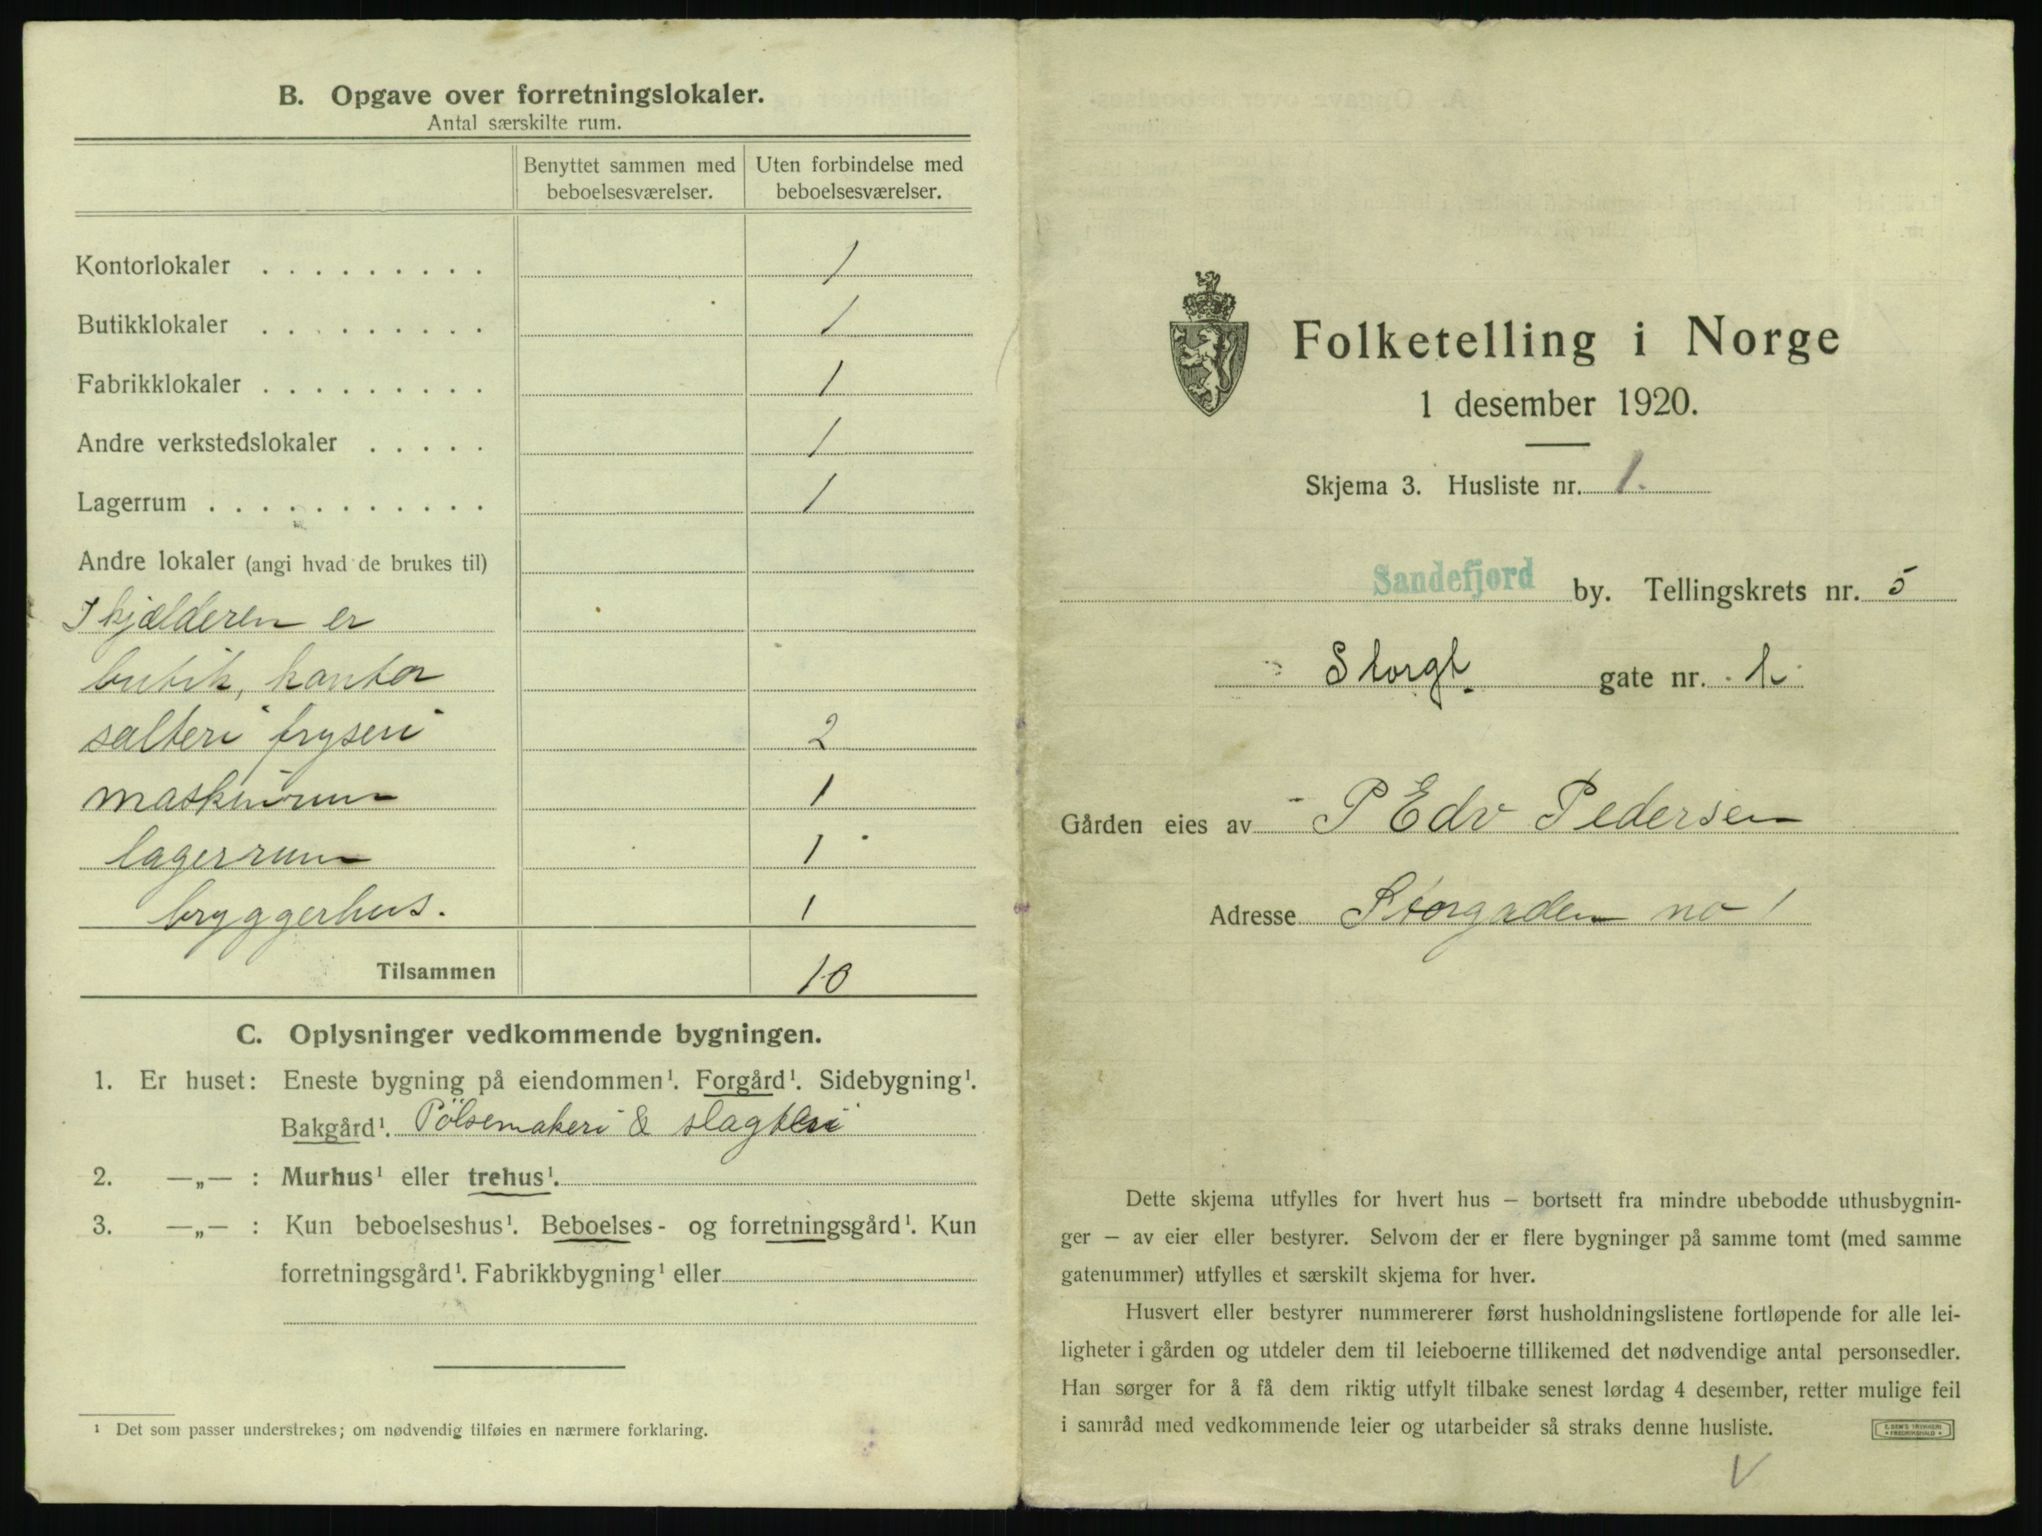 B. Opgave over forretningslokaler.
Antal særskilte rum.
Benyttet sammen med beboelsesværelser.
Uten forbindelse med beboelsesværelser.
Kontorlokaler . . . . . . . . . 1
Butikklokaler . . . . . . . . . 1
Fabrikklokaler . . . . . . . . . 1
Andre verkstedslokaler . . . . . 1
Lagerrum . . . . . . . . . . . . 1
Andre lokaler (angi hvad de brukes til)
I kjælderen er
butik, kontor
salteri fryseri 2
maskinrum 1
lagerrum 1
bryggerhus. 1
Tilsammen 10
C. Oplysninger vedkommende bygningen.
1. Er huset: Eneste bygning på eiendommen¹. Forgård¹. Sidebygning¹.
Bakgård¹. Pölsemakeri & slagteri
2. —„— : Murhus¹ eller trehus¹.
3. —„— : Kun beboelseshus¹. Beboelses- og forretningsgård¹. Kun
forretningsgård¹. Fabrikkbygning¹ eller
¹ Det som passer understrekes; om nødvendig tilføies en nærmere forklaring.
Folketelling i Norge
1 desember 1920.
Skjema 3. Husliste nr. 1.
Sandefjord by. Tellingskrets nr. 5
Storgt. gate nr.
Gården eies av P Edv Pedersen
Adresse Storgaden no 1
Dette skjema utfylles for hvert hus — bortsett fra mindre ubebodde uthusbygnin-
ger — av eier eller bestyrer. Selvom der er flere bygninger på samme tomt (med samme
gatenummer) utfylles et særskilt skjema for hver.
Husvert eller bestyrer nummererer først husholdningslistene fortløpende for alle lei-
ligheter i gården og utdeler dem til leieboerne tillikemed det nødvendige antal personsedler.
Han sørger for å få dem riktig utfylt tilbake senest lørdag 4 desember, retter mulige feil
i samråd med vedkommende leier og utarbeider så straks denne husliste.